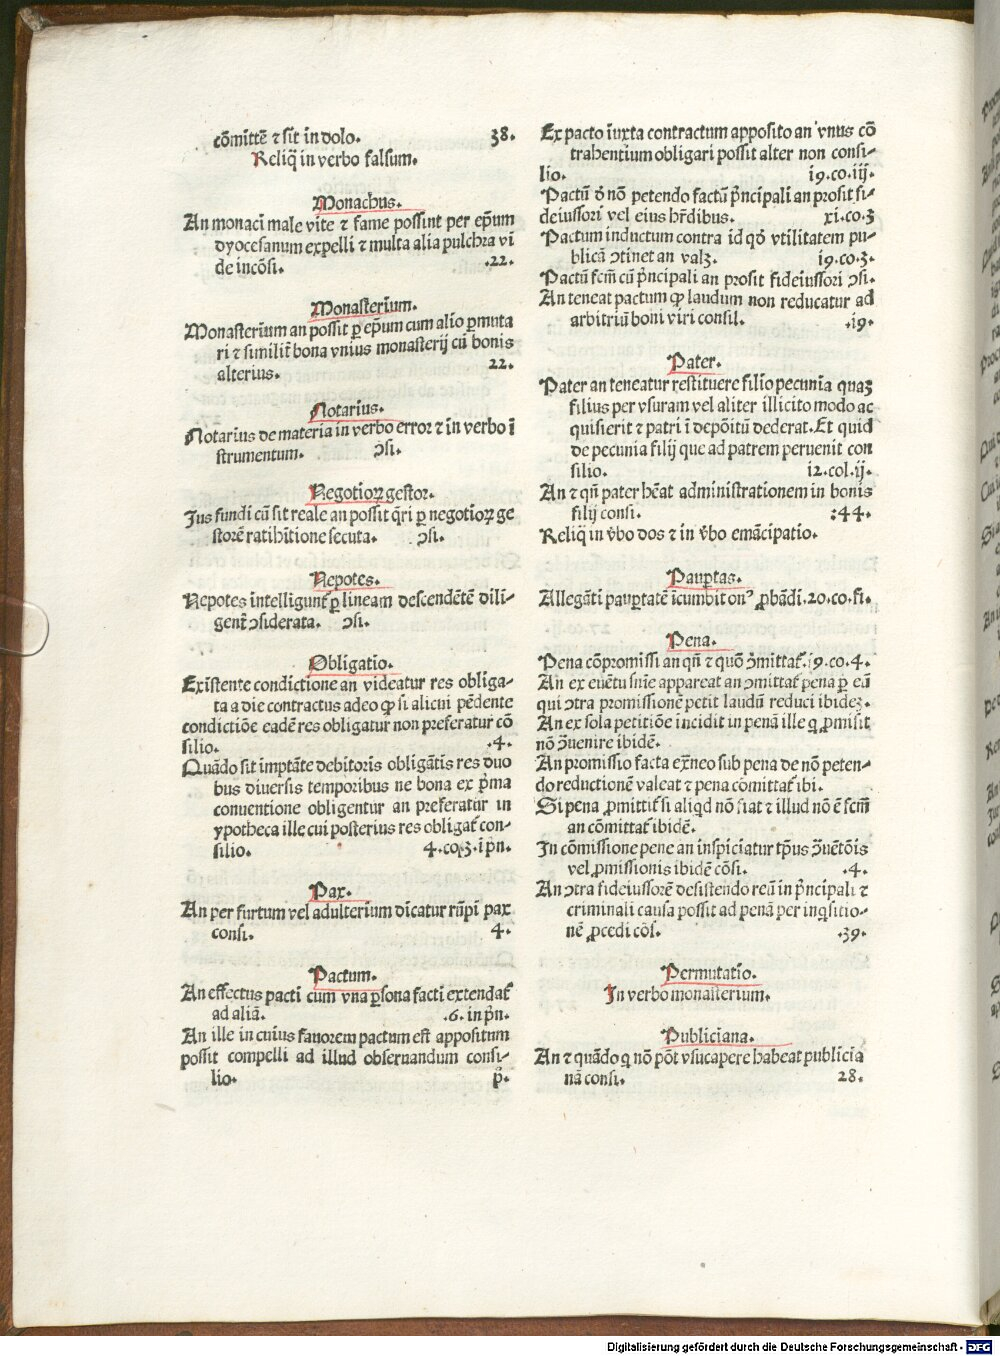 cōmittē ⁊ sit in dolo. 38.
Reliq̄ in verbo falsum.
Monachus.
An monaci male vite ⁊ fame possint per ep̄um
dyocesanum expelli ⁊ multa alia pulchra vi
de incōsi. .22.
Monasterium.
Monasterium an possit ꝑ ep̄um cum alio ꝑmuta
ri ⁊ similit̄ bona vnius monasterij cū bonis
alterius. 22.
Notarius.
Notarius de materia in verbo error ⁊ in verbo ī
strumentum. ↄsi.
Negotioꝝ gestor.
Jus fundi cū sit reale an possit q̄ri ꝑ negotioꝝ ge
storē ratihītione secuta. ↄsi.
Nepotes.
Nepotes intelligunt̄ ꝑ lineam descendētē dili-
gent̄ ↄsiderata. ↄsi.
Obligatio.
Existente condictione an videatur res obliga-
ta a die contractus adeo ꝙ si alicui pēdente
condictiōe eadē res obligatur non preferatur cō
silio. .4.
Quādo sit imptāte debitoris obligātis res duo
bus diuersis temporibus ne bona ex p̄ma
conuentione obligentur an preferatur in
ypotheca ille cui posterius res obligat̄ con-
silio. 4.co.3.ī pn̄.
Pax.
An per furtum vel adulterium dicatur rūpi pax
consi. 4.
Pactum.
An effectus pacti cum vna ꝑsona facti extendat̄
ad aliā. .6. in pn̄.
An ille in cuius fauorem pactum est appositum
possit compelli ad illud obseruandum consi-
lio. p̄.
Ex pacto iuxta contractum apposito an vnus cō
trahentium obligari possit alter non consi-
lio. i9.co.iij.
Pactū d̄ nō petendo factū p̄ncipali an prosit fi-
deiussori vel eius hr̄dibus. xi.co.3
Pactum inductum contra id qd̄ vtilitatem pu-
blicā ↄtinet an valꝫ. i9.co.3.
Pactū fcm̄ cū p̄ncipali an prosit fideiussori ↄsi.
An teneat pactum ꝙ laudum non reducatur ad
arbitriū boni viri consil. .i9.
Pater.
Pater an teneatur restituere filio pecunia quaꝫ
filius per vsuram vel aliter illicito modo ac
quisierit ⁊ patri ī depōitū dederat. Et quid
de pecunia filij que ad patrem peruenit con
silio. i2.col.ij.
An ⁊ qn̄ pater hēat administrationem in bonis
filij consi. :44.
Reliq̄ in v̄bo dos ⁊ in v̄bo emācipatio.
Pauꝑtas.
Allegāti pauꝑtatē īcumbit onꝰ ꝓbādi.20.co.fi.
Pena.
Pena cōpromissi an qn̄ ⁊ quō ↄmittat̄.i9.co.4.
An ex euētu snīe appareat an ↄmittat̄ pena ꝑ eū
qui ↄtra promissionē petit laudū reduci ibideꝫ.
An ex sola petitiōe incidit in penā ille q ꝓmisit
nō ↄuenire ibidē.
An promissio facta ex̄neo sub pena de nō peten-
do reductionē valeat ⁊ pena cōmittat̄ ibi.
Si pena ꝓmittit̄ si aliqd nō fiat ⁊ illud nō ē fcm̄
an cōmittat̄ ibidē.
In cōmissione pene an inspiciatur tp̄us ↄuētōis
vel ꝓmissionis ibidē cōsi. .4.
An ↄtra fideiussorē desistendo reū in p̄ncipali ⁊
criminali causa possit ad penā per inqsitio-
nē ꝓcedi cōs̄. .39.
Permutatio.
In verbo monasterium.
Publiciana.
An ⁊ quādo q nō pōt vsucapere habeat publicia
nā consi. 28.
Digitalisierung gefördert durch die Deutsche Forschungsgemeinschaft - DFG